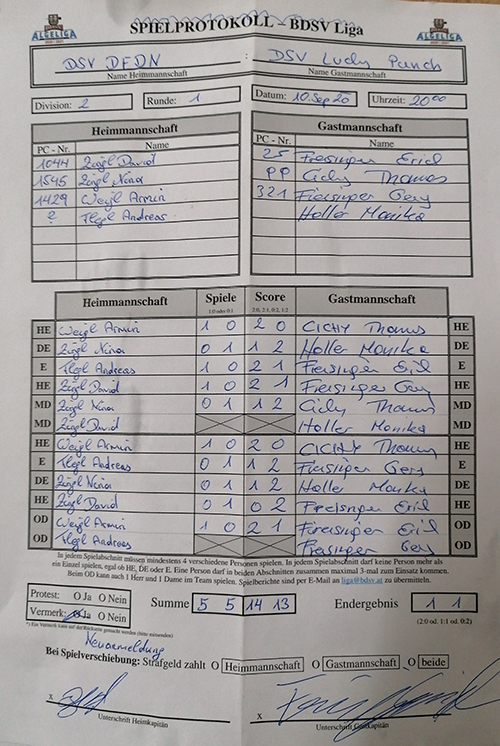 ALGELIGA SPIELPROTOKOLL - BDSV Liga ALGELIGA
DSV DFDN : DSV Lucky Punch
Name Heimmannschaft Name Gastmannschaft
Division: 2 Runde: 1 Datum: 10.Sep 20 Uhrzeit: 20:00
Heimmannschaft Gastmannschaft
PC - Nr. Name PC - Nr. Name
1044 Zügl David 25 Freisinger Erich
1545 Zügl Nina PP Cichy Thomas
1429 Weigl Armin 321 Freisinger Gery
? Flegl Andreas Holler Monika
Heimmannschaft Spiele Score Gastmannschaft
1:0 oder 0:1 2:0, 2:1, 0:2, 1:2
HE Weigl Armin 1 0 2 0 CICHY Thomas HE
DE Zügl Nina 0 1 1 2 Holler Monika DE
E Flegl Andreas 1 0 2 1 Freisinger Erich E
HE Zügl David 1 0 2 1 Freisinger Gery HE
MD Zügl Nina 0 1 1 2 Cichy Thomas MD
MD Zügl David Holler Monika MD
HE Weigl Armin 1 0 2 0 CICHY Thomas HE
E Flegl Andreas 0 1 1 2 Freisinger Gery E
DE Zügl Nina 0 1 1 2 Holler Monika DE
HE Zügl David 0 1 0 2 Freisinger Erich HE
OD Weigl Armin 1 0 2 1 Freisinger Erich OD
OD Flegl Andreas Freisinger Gery OD
In jedem Spielabschnitt müssen mindestens 4 verschiedene Personen spielen. In jedem Spielabschnitt darf keine Person mehr als
ein Einzel spielen, egal ob HE, DE oder E. Eine Person darf in beiden Abschnitten zusammen maximal 3-mal zum Einsatz kommen.
Beim OD kann auch 1 Herr und 1 Dame im Team spielen. Spielberichte sind per E-Mail an liga@bdsv.at zu übermitteln.
Protest: O Ja O Nein
Vermerk: O Ja O Nein
Summe 5 5 14 13 Endergebnis 1 1
*) Ein Vermerk kann auf der Rückseite gemacht werden (bitte ankreuzen) (2:0 od. 1:1 od. 0:2)
Neuanmeldung
Bei Spielverschiebung: Strafgeld zahlt O Heimmannschaft O Gastmannschaft O beide
x x
Unterschrift Heimkapitän Unterschrift Gastkapitän